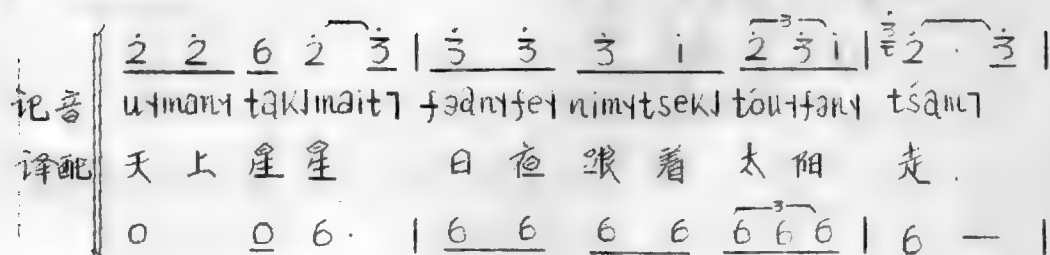 2̇ 2̇ 6 2̇ 3̇ | 3̇ 3̇ 3̇ i 2̇ 3̇ i | 3̇ 2̇ · 3̇ |
记音 u˧man˧ tak˩mait˥ fədn˧fe˧ nim˧tsek˩ tou˧fan˧ tsam˥
译配 天 上 星 星 日 夜 跟 着 太 阳 走 .
0 0 6 · | 6 6 6 6 6 6 6 | 6 — |